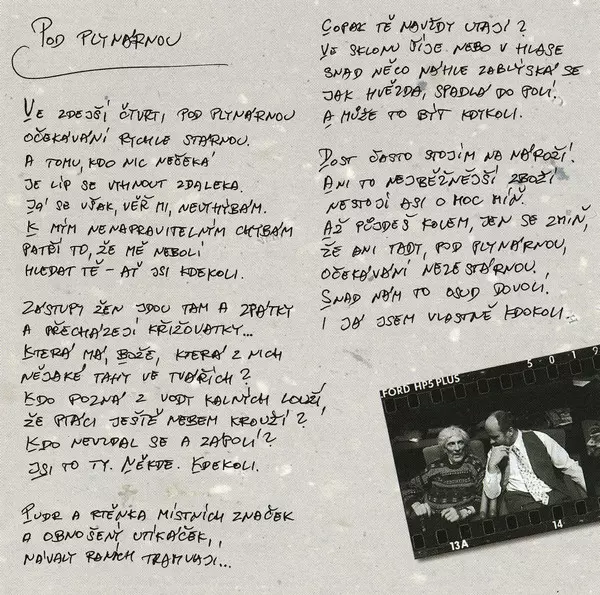 POD PLYNÁRNOU
VE ZDEJŠÍ ČTVRTI, POD PLYNÁRNOU
OČEKÁVÁNÍ RYCHLE STÁRNOU.
A TOMU, KDO NIC NEČEKÁ
JE LÍP SE VYHNOUT ZDALEKA.
JÁ SE VŠAK, VĚŘ MI, NEVYHÝBÁM.
K MÝM NENAPRAVITELNÝM CHYBÁM
PATŘÍ TO, ŽE MĚ NEBOLÍ
HLEDAT TĚ – AŤ JSI KDEKOLI.
ZÁSTUPY ŽEN JDOU TAM A ZPÁTKY
A PŘECHÁZEJÍ KŘIŽOVATKY...
KTERÁ MÁ, BOŽE, KTERÁ Z NICH
NĚJAKÉ TAHY VE TVÁŘÍCH?
KDO POZNÁ Z VODY KALNÝCH LOUŽÍ,
ŽE PTÁCI JEŠTĚ NEBEM KROUŽÍ?
KDO NEVZDAL SE A ZÁPOLÍ?
JSI TO TY. NĚKDE. KDEKOLI.
PUDR A RTĚNKA MÍSTNÍCH ZNAČEK
A OBNOŠENÝ UTÍKÁČEK,
NÁVALY RANNÍCH TRAMVAJÍ...
COPAK TĚ NAVŽDY UTAJÍ?
VE SKLONU ŠÍJE NEBO V HLASE
SNAD NĚCO NÁHLE ZABLÝSKÁ SE
JAK HVĚZDA, SPADLÁ DO POLÍ.
A MŮŽE TO BÝT KDYKOLI.
DOST ČASTO STOJÍM NA NÁROŽÍ.
ANI TO NEJBĚŽNĚJŠÍ ZBOŽÍ
NESTOJÍ ASI O MOC MÍŇ.
AŽ PŮJDEŠ KOLEM, JEN SE ZMIŇ,
ŽE ANI TADY, POD PLYNÁRNOU,
OČEKÁVÁNÍ NEZESTÁRNOU.
SNAD NÁM TO OSUD DOVOLÍ.
I JÁ JSEM VLASTNĚ KDOKOLI.
FORD HP5 PLUS
5 0 1 9
13A
14